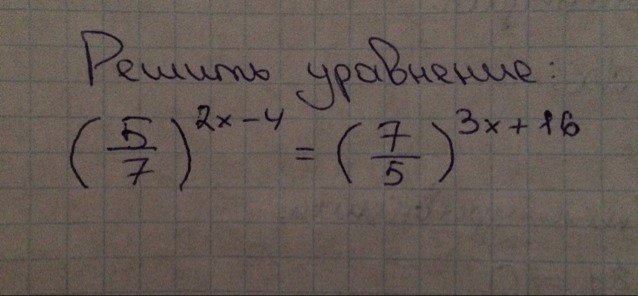 Решить уравнение:
(5/7)^(2x-4) = (7/5)^(3x+16)